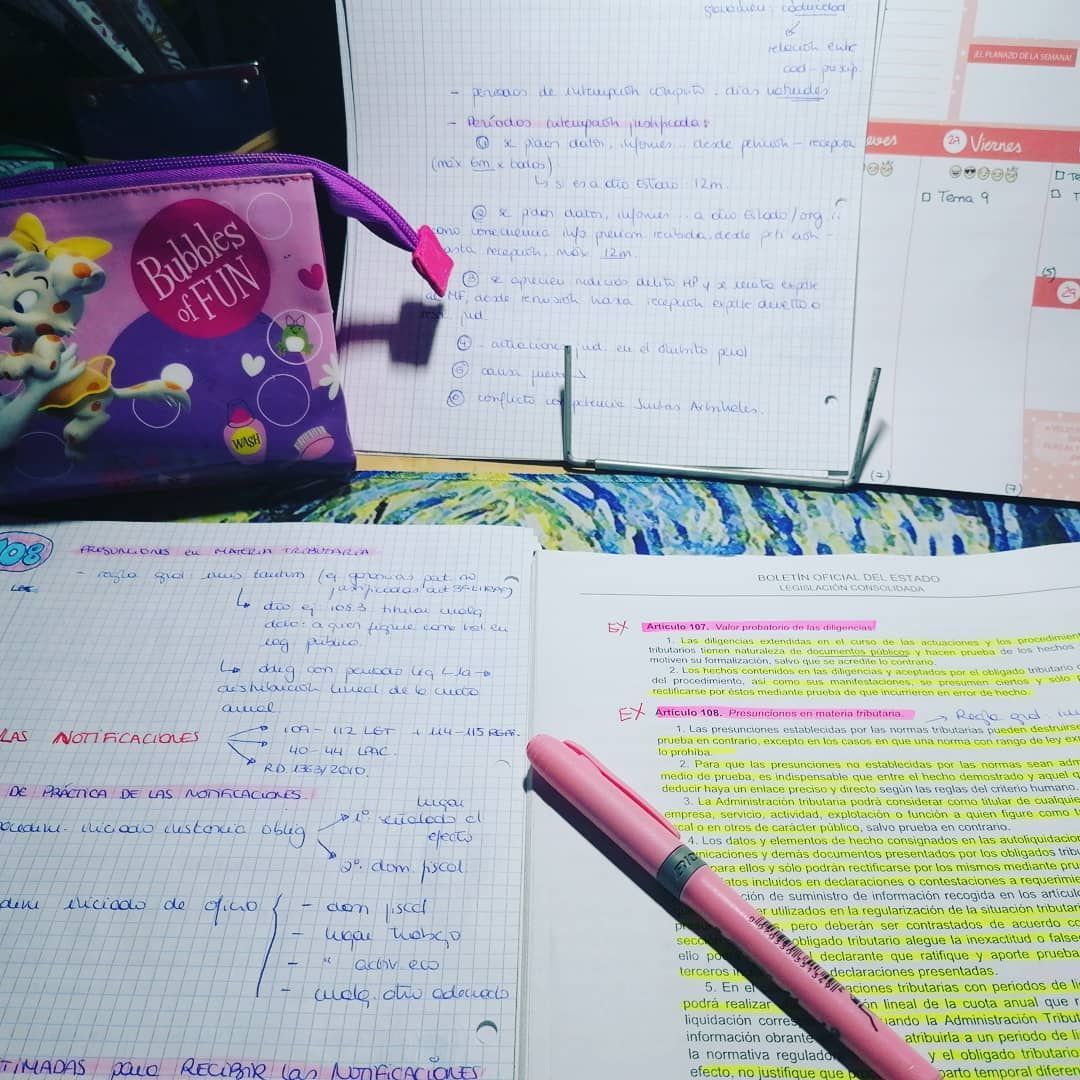 caducidad
relación entre
cad - presup.
- periodos de interrupción cómputo: días naturales
- Períodos interrupción justificada:
① se piden datos, informes... desde petición - recepción
(máx 6m x todos)
↳ si es a otro Estado: 12m.
② se piden datos, informes... a otro Estado/org.
como consecuencia info previam. recibida, desde petición -
hasta recepción, máx 12m.
③ se aprecien indicios delito HP y se remita expte
al MF, desde remisión hasta recepción expte devuelto o
jud.
④ - actuaciones jud. en el ámbito penal
⑤ causa
⑥ conflicto competencia Juntas Arbitrales.
¡EL PLANAZO DE LA SEMANA!
eves
27 Viernes
Tema 9
(5)
29
(7)
(7)
Bubbles
of FUN
WASH
108
PRESUNCIONES en MATERIA TRIBUTARIA
- regla gral iuris tantum (ej ganancias pat. no
justificadas art 39 LIRPF)
↳ otro ej 108.3 titular cualq
dcho: a quien figure como tal en
reg público.
↳ oblig con periodo liq < 1a →
distribución lineal de la cuota
anual
LAS NOTIFICACIONES
→ 109 - 112 LGT + 114-115 RGAT.
→ 40-44 LPAC.
→ RD 1363/2010.
DE PRÁCTICA DE LAS NOTIFICACIONES
procedim. iniciado instancia oblig
1º. lugar
señalado al
efecto
2º. dom. fiscal
iniciado de oficio
- dom fiscal
- lugar trabajo
- " activ. eco
- cualq. otro adecuado
TIMADAS para RECIBIR las NOTIFICACIONES
BOLETÍN OFICIAL DEL ESTADO
LEGISLACIÓN CONSOLIDADA
EX Artículo 107. Valor probatorio de las diligencias.
1. Las diligencias extendidas en el curso de las actuaciones y los procedimien
tributarios tienen naturaleza de documentos públicos y hacen prueba de los hechos
motiven su formalización, salvo que se acredite lo contrario.
2. Los hechos contenidos en las diligencias y aceptados por el obligado tributario
del procedimiento, así como sus manifestaciones, se presumen ciertos y sólo p
rectificarse por éstos mediante prueba de que incurrieron en error de hecho.
EX Artículo 108. Presunciones en materia tributaria. → Regla gral. iu
1. Las presunciones establecidas por las normas tributarias pueden destruirse
prueba en contrario, excepto en los casos en que una norma con rango de ley ex
lo prohíba.
2. Para que las presunciones no establecidas por las normas sean adm
medio de prueba, es indispensable que entre el hecho demostrado y aquel q
deducir haya un enlace preciso y directo según las reglas del criterio humano.
3. La Administración tributaria podrá considerar como titular de cualquie
empresa, servicio, actividad, explotación o función a quien figure como t
cal o en otros de carácter público, salvo prueba en contrario.
4. Los datos y elementos de hecho consignados en las autoliquidacion
nicaciones y demás documentos presentados por los obligados tribu
para ellos y sólo podrán rectificarse por los mismos mediante pru
atos incluidos en declaraciones o contestaciones a requerimie
ción de suministro de información recogida en los artícul
ar utilizados en la regularización de la situación tributari
pero deberán ser contrastados de acuerdo co
secc obligado tributario alegue la inexactitud o false
ello po declarante que ratifique y aporte prueba
terceros declaraciones presentadas.
5. En el aciones tributarias con periodos de li
podrá realizar ón lineal de la cuota anual que r
liquidación corres uando la Administración Tribut
información obrante atribuirla a un periodo de li
la normativa regulado y el obligado tributario
efecto, no justifique que p parto temporal diferen